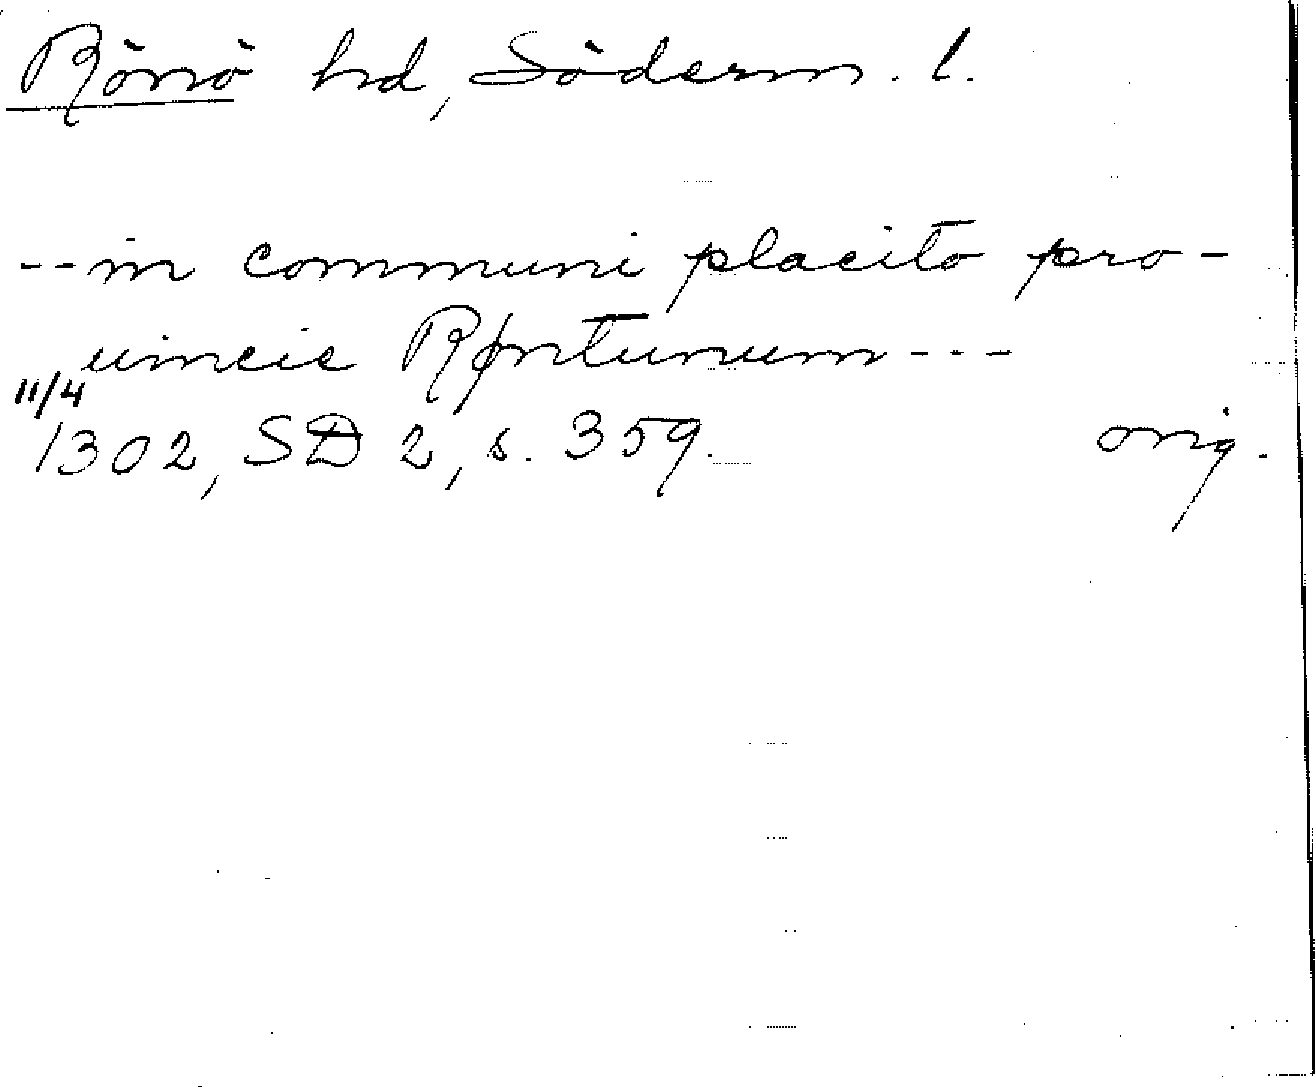 Rönö hd, Söderm. l.
--in communi placito pro-
uincie Røntunum---
11/4
1302, SD 2, s. 359. orig.